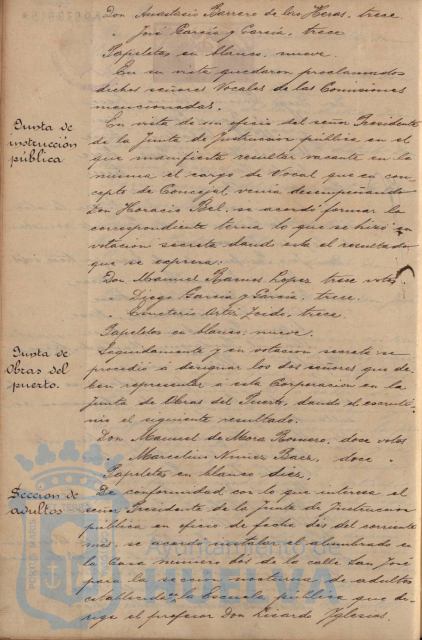 Don Anastasio Barrero de las Heras, trece
" José García y García, trece
Papeletas en blanco, nueve.
En su vista quedaron proclamados
dichos señores Vocales de las Comisiones
mencionadas.
Junta de
instrucción
pública
En vista de un oficio del señor Presidente
de la Junta de Instrucción pública en el
que manifiesta resultar vacante en la
misma el cargo de Vocal que en con-
cepto de Concejal, venía desempeñando
Don Horacio Bel, se acordó formar la
correspondiente terna lo que se hizo en
votación secreta dando esta el resultado
que se expresa:
Don Manuel Ramos Lopez trece votos
" Diego García y García, trece.
" Emeterio Ortiz, trece
Papeletas en blanco, nueve.
Junta de
Obras del
puerto.
Seguidamente y en votación secreta se
procedió a designar los dos señores que de-
ben representar a esta Corporación en la
Junta de Obras del Puerto, dando el escruti-
nio el siguiente resultado.
Don Manuel de Mora Romero, doce votos
" Marcelino Nuñez Baez, doce "
Papeletas en blanco diez.
Sección de
adultos
De conformidad con lo que interesa el
señor Presidente de la Junta de Instrucción
pública en oficio de fecha dos del corriente
mes, se acordó instalar el alumbrado en
la casa número dos de la calle San José
para la sección nocturna de adultos
la Escuela pública que di-
rige el profesor Don Ricardo Iglesias.
Ayuntamiento de
HUELVA